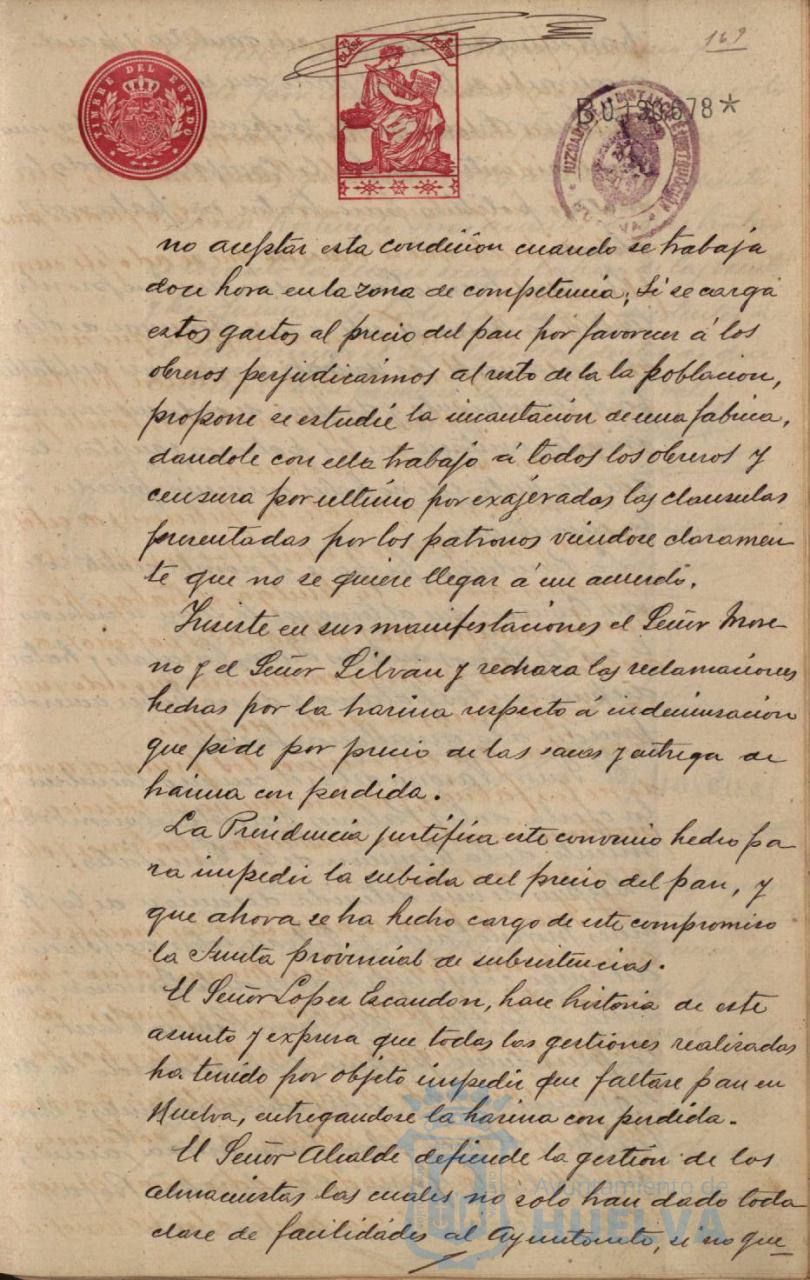 169
7ª CLASE PESETAS
TIMBRE DEL ESTADO
B.0.130.678*
JUZGADO DE INSTRUCCIÓN
HUELVA
no aceptar esta condición cuando se trabaja
doce hora en la zona de competencia; Si se carga
estos gastos al precio del pan por favorecer á los
obreros perjudicarimos al resto de la la poblacion,
propone se estudie la incautación de una fabrica,
dandole con ella trabajo á todos los obreros y
censura por ultimo por exajeradas las clausulas
presentadas por los patronos viendose claramen
te que no se quiere llegar á un acuerdo.
Insiste en sus manifestaciones el Señor More-
no y el Señor Silvan y rechaza las reclamaciones
hechas por la harina respecto á indemnisación
que pide por precio de las sacas y entrega de
harina con perdida.
La Presidencia justifica este convenio hecho pa-
ra impedir la subida del precio del pan, y
que ahora se ha hecho cargo de este compromiso
la Junta provincial de subsistencias.
El Señor Lopez Escandon, hace historia de este
asunto y expresa que todas las gestiones realizadas
ha tenido por objeto impedir que faltase pan en
Huelva, entregandose la harina con perdida.
El Señor Alcalde defiende la gestión de los
almacenistas los cuales no solo han dado toda
clase de facilidades al Ayuntamiento, si no que
Ayuntamiento de
HUELVA